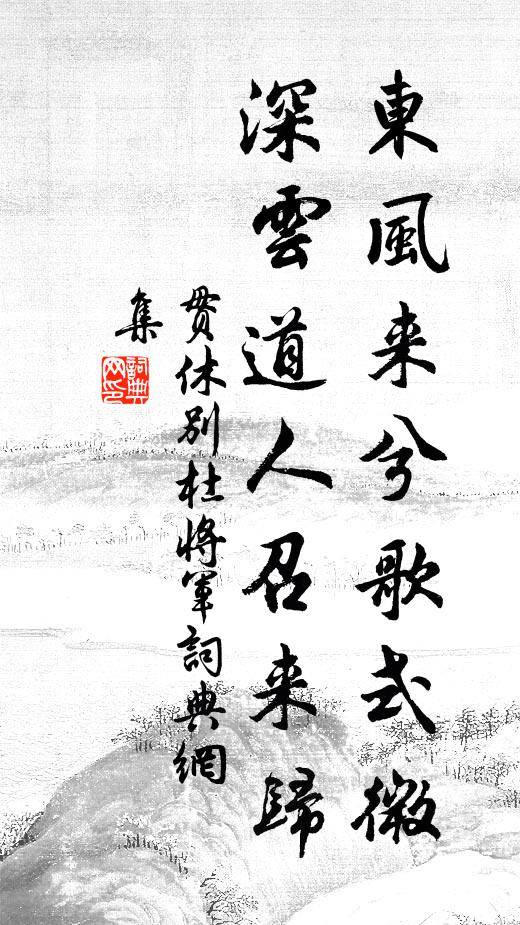 東風来兮歌式微
深雲道人召来歸
貫休別杜將軍詞典網
集
詞典
网印